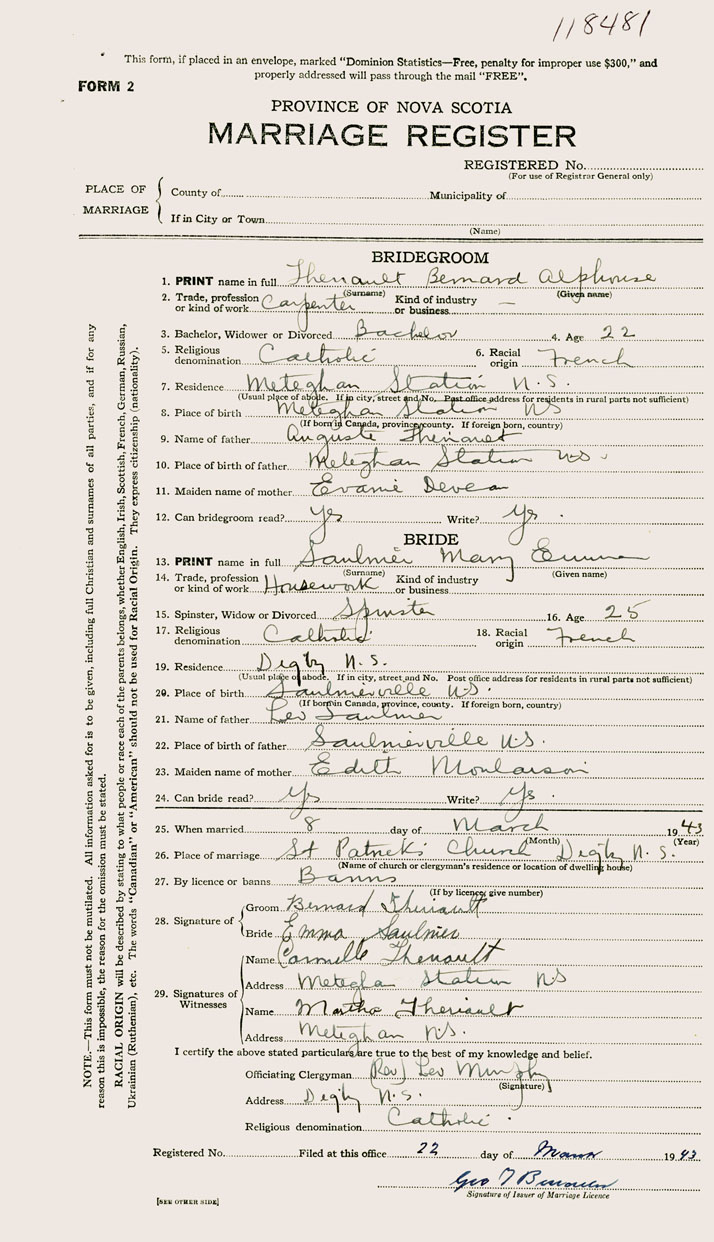 118481
This form, if placed in an envelope, marked "Dominion Statistics—Free, penalty for improper use $300," and
properly addressed will pass through the mail "FREE".
FORM 2
PROVINCE OF NOVA SCOTIA
MARRIAGE REGISTER
REGISTERED No.
(For use of Registrar General only)
PLACE OF MARRIAGE
County of Municipality of
If in City or Town
(Name)
BRIDEGROOM
1. PRINT name in full Theriault Bernard Alphonse
(Surname) (Given name)
2. Trade, profession or kind of work Carpenter Kind of industry or business —
3. Bachelor, Widower or Divorced Bachelor 4. Age 22
5. Religious denomination Catholic 6. Racial origin French
7. Residence Meteghan Station N.S.
(Usual place of abode. If in city, street and No. Post office address for residents in rural parts not sufficient)
8. Place of birth Meteghan Station NS
(If born in Canada, province, county. If foreign born, country)
9. Name of father Auguste Theriault
10. Place of birth of father Meteghan Station N.S.
11. Maiden name of mother Evanie Deveau
12. Can bridegroom read? Yes Write? Yes.
BRIDE
13. PRINT name in full Saulnier Mary Emma
(Surname) (Given name)
14. Trade, profession or kind of work Housework Kind of industry or business
15. Spinster, Widow or Divorced Spinster 16. Age 25
17. Religious denomination Catholic 18. Racial origin French
19. Residence Digby N.S.
(Usual place of abode. If in city, street and No. Post office address for residents in rural parts not sufficient)
20. Place of birth Saulnierville N.S.
(If born in Canada, province, county. If foreign born, country)
21. Name of father Leo Saulnier
22. Place of birth of father Saulnierville N.S.
23. Maiden name of mother Edith Moulaison
24. Can bride read? Yes Write? Yes.
25. When married 8 day of March 1943
(Month) (Year)
26. Place of marriage St Patrick's Church Digby N.S.
(Name of church or clergyman's residence or location of dwelling house)
27. By licence or banns Banns
(If by licence, give number)
28. Signature of
Groom Bernard Theriault
Bride Emma Saulnier
29. Signatures of Witnesses
Name Theriault
Address Meteghan Station N.S
Name Martha Theriault
Address Meteghan N.S.
I certify the above stated particulars are true to the best of my knowledge and belief.
Officiating Clergyman (Rev) Leo Murphy
(Signature)
Address Digby N.S.
Religious denomination Catholic.
Registered No. Filed at this office 22 day of March 1943
Geo T
Signature of Issuer of Marriage Licence
[SEE OTHER SIDE]
NOTE.—This form must not be mutilated. All information asked for is to be given, including full Christian and surnames of all parties, and if for any
reason this is impossible, the reason for the omission must be stated.
RACIAL ORIGIN will be described by stating to what people or race each of the parents belongs, whether English, Irish, Scottish, French, German, Russian,
Ukrainian (Ruthenian), etc. The words "Canadian" or "American" should not be used for Racial Origin. They express citizenship (nationality).